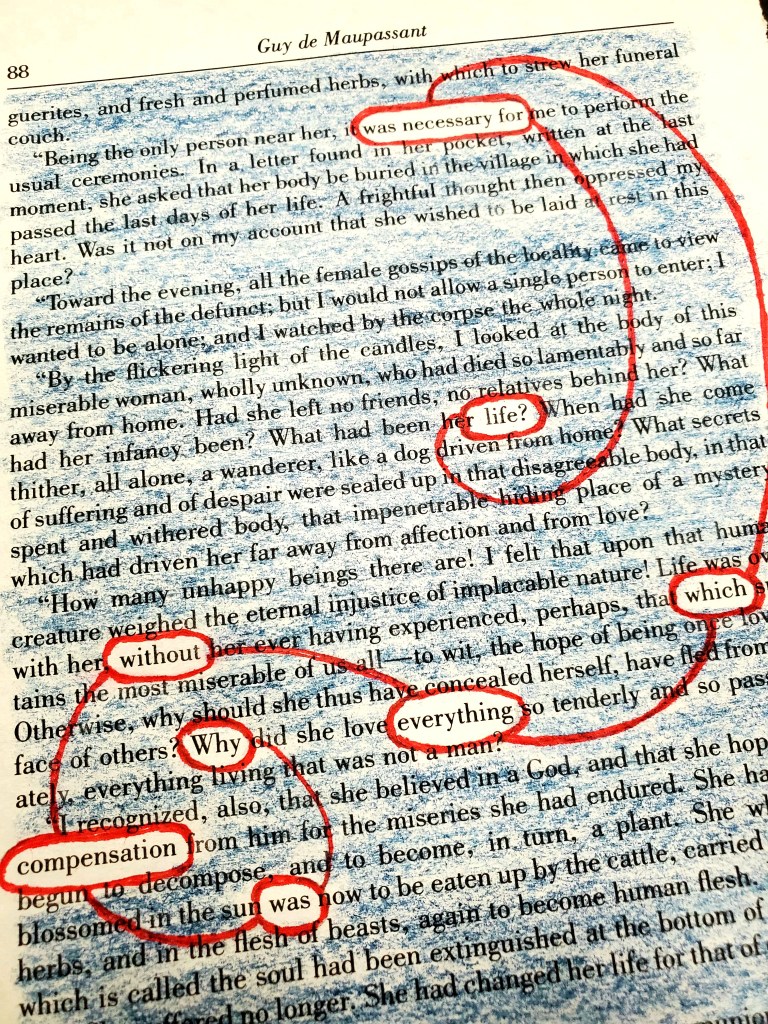 88
Guy de Maupassant
guerites, and fresh and perfumed herbs, with which to strew her funeral
couch.
“Being the only person near her, it was necessary for me to perform the
usual ceremonies. In a letter found in her pocket, written at the last
moment, she asked that her body be buried in the village in which she had
passed the last days of her life. A frightful thought then oppressed my
heart. Was it not on my account that she wished to be laid at rest in this
place?
“Toward the evening, all the female gossips of the locality came to view
the remains of the defunct; but I would not allow a single person to enter; I
wanted to be alone; and I watched by the corpse the whole night.
“By the flickering light of the candles, I looked at the body of this
miserable woman, wholly unknown, who had died so lamentably and so far
away from home. Had she left no friends, no relatives behind her? What
had her infancy been? What had been her life? When had she come
thither, all alone, a wanderer, like a dog driven from home? What secrets
of suffering and of despair were sealed up in that disagreeable body, in that
spent and withered body, that impenetrable hiding place of a mystery
which had driven her far away from affection and from love?
“How many unhappy beings there are! I felt that upon that human
creature weighed the eternal injustice of implacable nature! Life was
with her, without her ever having experienced, perhaps, that which
tains the most miserable of us all—to wit, the hope of being once
Otherwise, why should she thus have concealed herself, have fled from
face of others? Why did she love everything so tenderly and so
ately, everything living that was not a man?
“I recognized, also, that she believed in a God, and that she
compensation from him for the miseries she had endured. She
begun to decompose, and to become, in turn, a plant. She
blossomed in the sun was now to be eaten up by the cattle, carried
herbs, and in the flesh of beasts, again to become human flesh.
which is called the soul had been extinguished at the bottom of
no longer. She had changed her life for that of